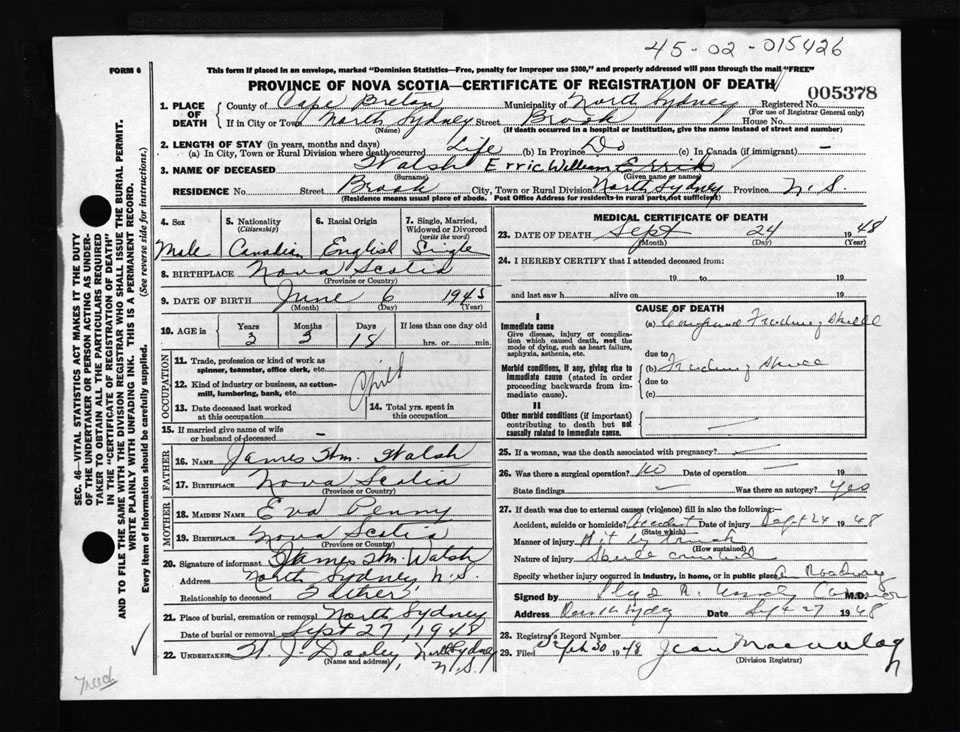 45-02-015426
FORM 6
This form if placed in an envelope, marked "Dominion Statistics—Free, penalty for improper use $300," and properly addressed will pass through the mail "FREE"
PROVINCE OF NOVA SCOTIA—CERTIFICATE OF REGISTRATION OF DEATH
005378
1. PLACE OF DEATH
County of Cape Breton Municipality of North Sydney Registered No.
(For use of Registrar General only)
If in City or Town North Sydney Street Brook House No.
(Name) (If death occurred in a hospital or institution, give the name instead of street and number)
2. LENGTH OF STAY (in years, months and days)
(a) In City, Town or Rural Division where death occurred Life (b) In Province Do (c) In Canada (if immigrant) —
3. NAME OF DECEASED Walsh Erric William Errick
(Surname) (Given name or names)
RESIDENCE No. Street Brook City, Town or Rural Division North Sydney Province N.S.
(Residence means usual place of abode. Post Office Address for residents in rural parts, not sufficient)
4. Sex
Male
5. Nationality
(Citizenship)
Canadian
6. Racial Origin
English
7. Single, Married, Widowed or Divorced
(write the word)
Single
8. BIRTHPLACE Nova Scotia
(Province or Country)
9. DATE OF BIRTH June 6 1945
(Month) (Day) (Year)
10. AGE in
Years Months Days If less than one day old
3 3 18 hrs. or min.
OCCUPATION
11. Trade, profession or kind of work as spinner, teamster, office clerk, etc.
12. Kind of industry or business, as cotton-mill, lumbering, bank, etc.
Child
13. Date deceased last worked at this occupation
14. Total yrs. spent in this occupation
15. If married give name of wife or husband of deceased —
FATHER
16. NAME James Wm. Walsh
17. BIRTHPLACE Nova Scotia
(Province or Country)
MOTHER
18. MAIDEN NAME Eva Penny
19. BIRTHPLACE Nova Scotia
(Province or Country)
20. Signature of informant James Wm. Walsh
Address North Sydney, N.S.
Relationship to deceased Father
21. Place of burial, cremation or removal North Sydney
Date of burial or removal Sept 27, 1948
22. UNDERTAKER W. J. Dooley, North Sydney N.S.
(Name and address)
MEDICAL CERTIFICATE OF DEATH
23. DATE OF DEATH Sept 24 1948
(Month) (Day) (Year)
24. I HEREBY CERTIFY that I attended deceased from:
19 to 19
and last saw h alive on 19
CAUSE OF DEATH
I
Immediate cause
Give disease, injury or complication which caused death, not the mode of dying, such as heart failure, asphyxia, asthenia, etc.
(a) Skull
due to
Morbid conditions, if any, giving rise to immediate cause (stated in order proceeding backwards from immediate cause).
(b) Skull
due to
(c)
II
Other morbid conditions (if important) contributing to death but not causally related to immediate cause.
25. If a woman, was the death associated with pregnancy?
26. Was there a surgical operation? No Date of operation — 19
State findings — Was there an autopsy? Yes
27. If death was due to external causes (violence) fill in also the following:
Accident, suicide or homicide? Accident Date of injury Sept 24 1948
(State which)
Manner of injury Hit by truck
(How sustained)
Nature of injury crushed
Specify whether injury occurred in industry, in home, or in public place On Roadway
Signed by M.D.
Address North Sydney Date Sept 27 1948
28. Registrar's Record Number
29. Filed Sept 30 1948 Jean
(Division Registrar)
SEC. 46—VITAL STATISTICS ACT MAKES IT THE DUTY
OF THE UNDERTAKER OR PERSON ACTING AS UNDERTAKER
TO OBTAIN ALL THE PARTICULARS REQUIRED
IN THE "CERTIFICATE OF REGISTRATION OF DEATH"
AND TO FILE THE SAME WITH THE DIVISION REGISTRAR WHO SHALL ISSUE THE BURIAL PERMIT.
WRITE PLAINLY WITH UNFADING INK. THIS IS A PERMANENT RECORD.
Every item of Information should be carefully supplied. (See reverse side for instructions.)